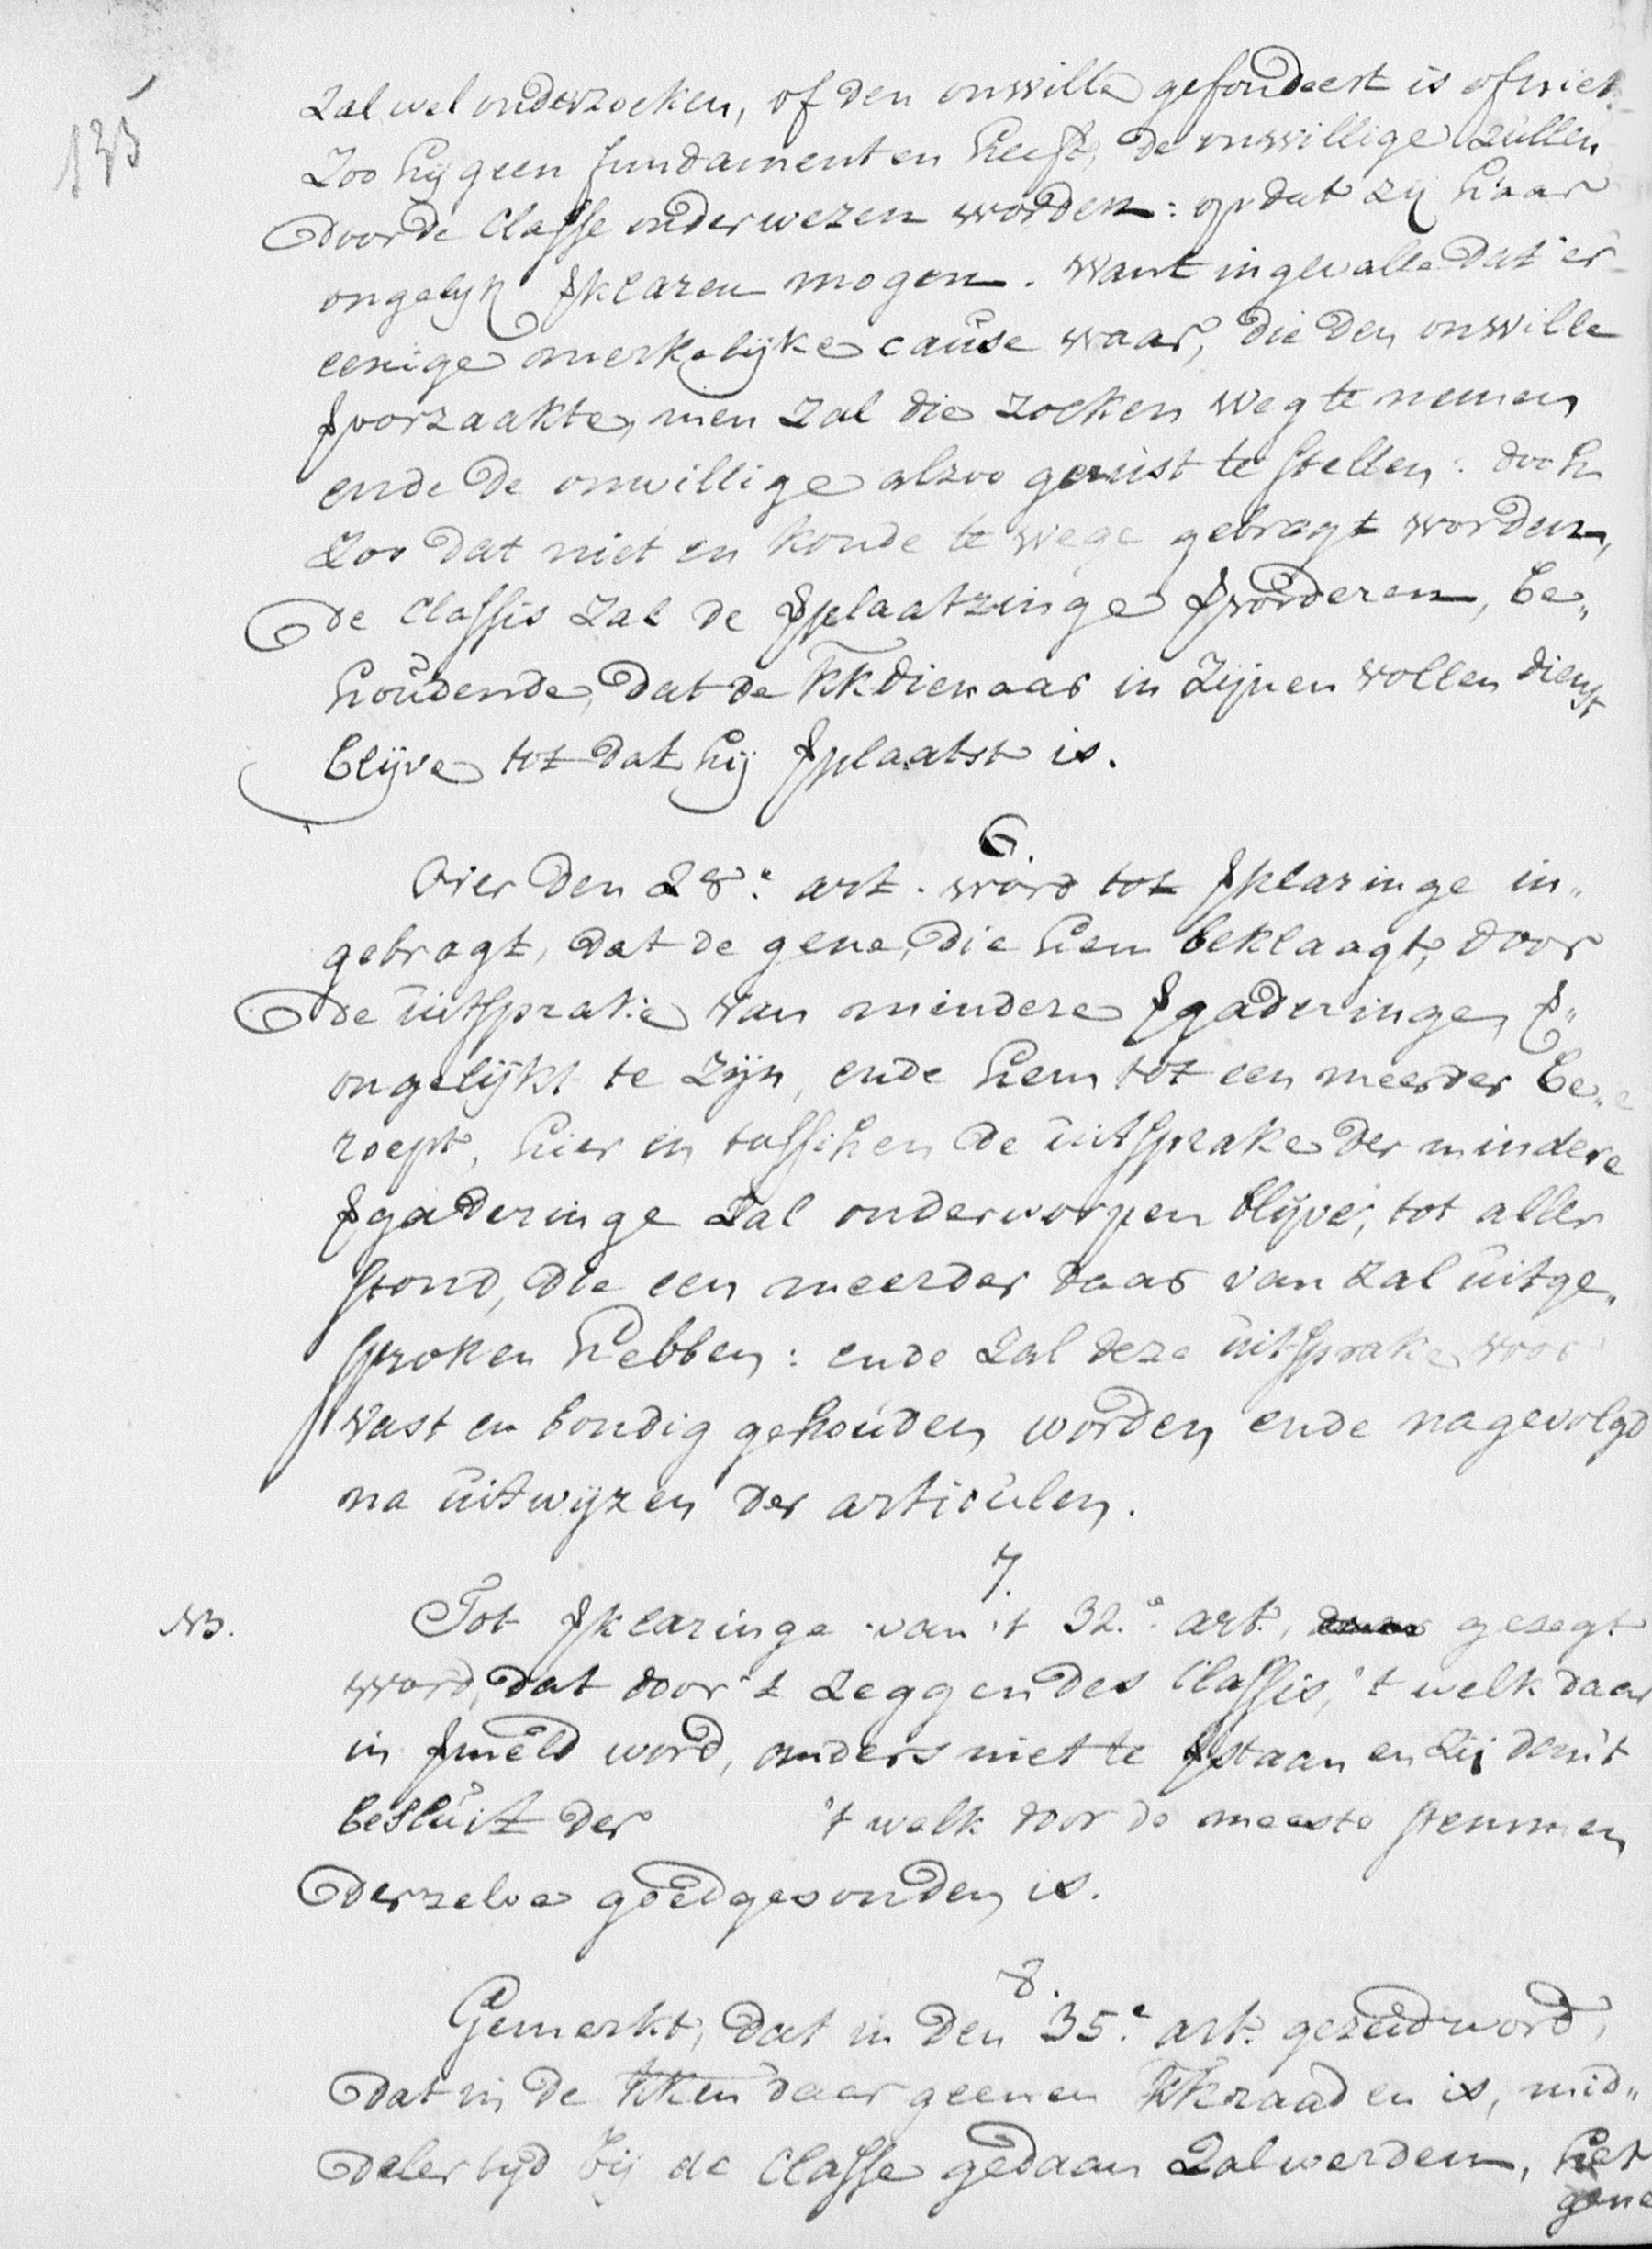 135
Zal wel onderzoeken, of den onwille gefondeert is of niet.
Zoo hij geen fundamenten heeft, de onwillige zullen
door de Classe onderwezen worden: op dat zij haar
ongelyk ℣klaren mogen. Want ingevalle dat er
eenige merkelijke cause waar, die den onwille
℣oorzaakte, men zal die zoeken weg te nemen
ende de onwillige alzoo gerust te stellen: doch
Zoo dat niet en konde te wege gebragt worden,
de Classis Zal de ℣plaatzinge ℣vorderen, be„
houdende, dat de KKdienaar in Zijnen vollen dienst
blijve tot dat hij ℣plaatst is.
6.
Over den 28e. art. word tot ℣klaringe in„
gebragt, dat de gene, die hem beklaagt, door
de uitsprake van mindere ℣gaderingen ℣„
ongelijkt te zijn, ende hem tot een meerder be„
roept, hier en tusschen de uitsprake der mindere
℣gaderinge Zal onderworpen blijve, tot aller
stond, die een meerder daar van zal uitge„
sproken hebben: ende Zal deze uitsprake voor
vast en bondig gehouden worden, ende nagevolgd
na uitwyzen der articulen.
7.
NB. Tot ℣klaringe van 't 32.e art., gesegt
word, dat door 't zeggen des Classis, 't welk daar
in ℣meld word, anders niet te ℣staan en zij dan 't
besluit der 't welk door de meeste stemmen
derzelve goedgevonden is.
8.
Gemerkt, dat in den 35.e art. gezeid word,
dat in de KKen daar geenen KKraaden is, mid„
delertyd bij de Classe gedaan Zal werden, het
gene